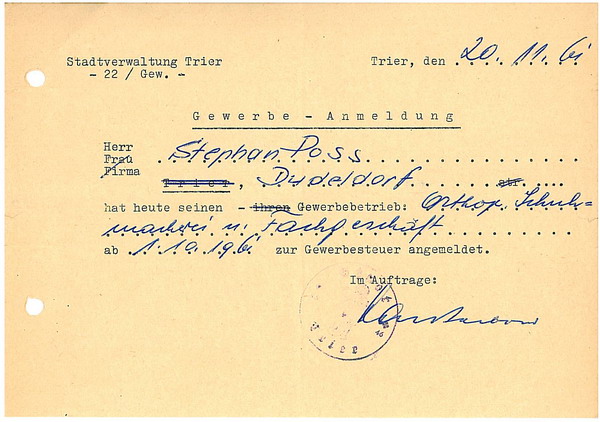 Stadtverwaltung Trier
- 22 / Gew. -
Trier, den 20. 11. 61
Gewerbe - Anmeldung
Herr
Frau Stephan Poss
Firma
Trier, Dudeldorf str.
hat heute seinen - ihren Gewerbebetrieb: Orthop. Schuh-
macherei u. Fachgeschäft
ab 1.10.1961 zur Gewerbesteuer angemeldet.
Im Auftrage: